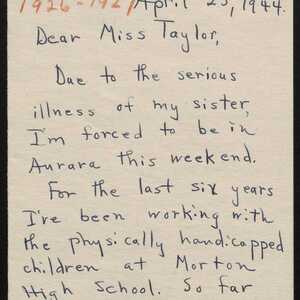 1926-1927 April 25, 1944.
Dear Miss Taylor,
Due to the serious
illness of my sister,
I'm forced to be in
Aurara this weekend.
For the last six years
I've been working with
the physically handicapped
children at Morton
High School. So far